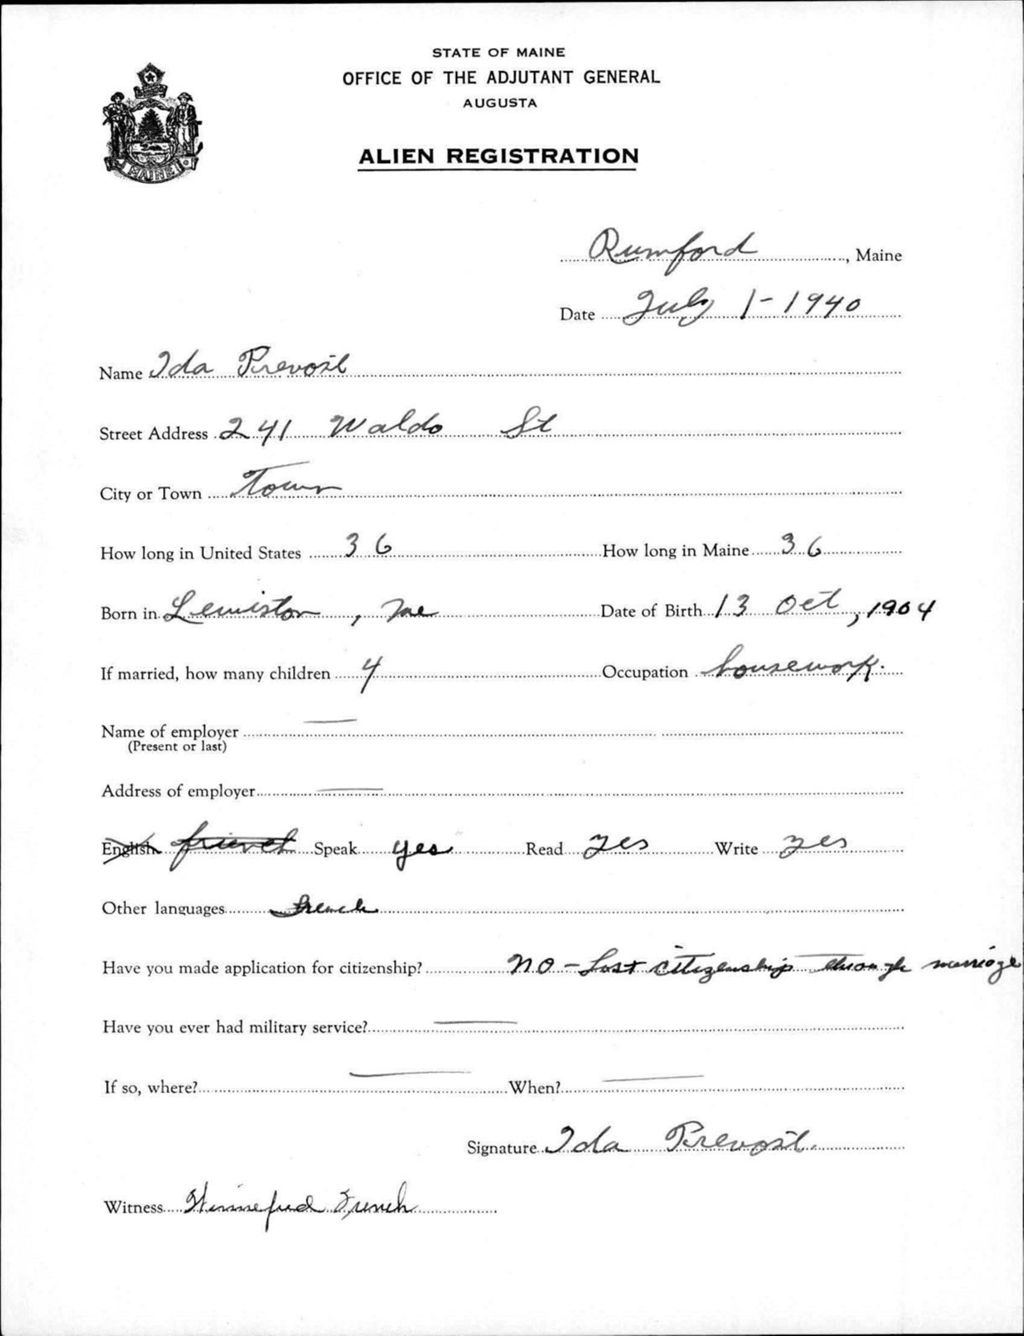 STATE OF MAINE
OFFICE OF THE ADJUTANT GENERAL
AUGUSTA
ALIEN REGISTRATION
MAINE
Rumford, Maine
Date July 1-1940
Name Ida Prevost
Street Address 241 Waldo St
City or Town Town
How long in United States 36 How long in Maine 36
Born in Lewiston, Me Date of Birth 13 Oct, 1904
If married, how many children 4 Occupation housework.
Name of employer
(Present or last)
Address of employer
English Speak yes Read yes Write yes
Other languages French
Have you made application for citizenship? No - Lost citizenship through marriage
Have you ever had military service?
If so, where? When?
Signature Ida Prevost.
Witness Winnefred French